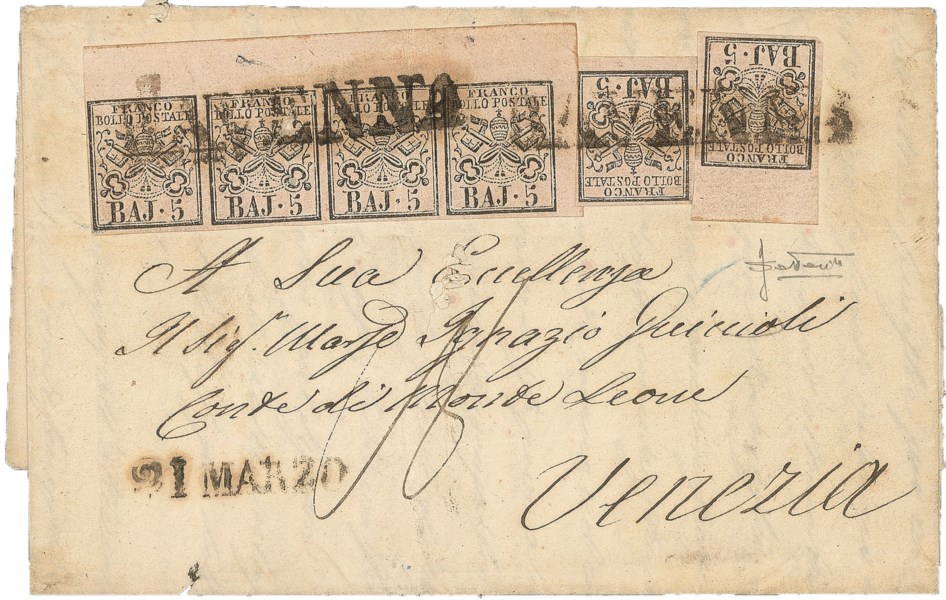 FRANCO
BOLLO POSTALE
BAJ·5
FRANCO
BOLLO POSTALE
BAJ·5
FRANCO
BOLLO POSTALE
BAJ·5
FRANCO
BOLLO POSTALE
BAJ·5
FRANCO
BOLLO POSTALE
BAJ·5
FRANCO
BOLLO POSTALE
BAJ·5
A Sua Eccellenza
Il Sigr. Marse Ignazio Guiccioli
Conte di Monte Leone
Venezia
21 MARZO